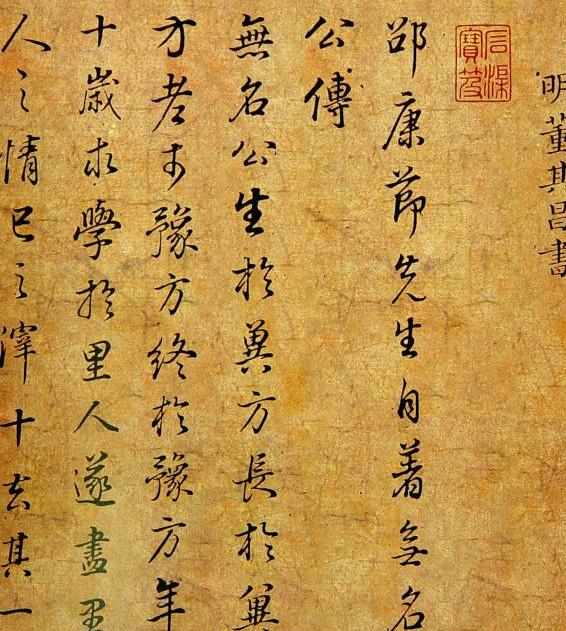 明董其昌書
寶笈
邵康節先生自著無名
公傳
無名公生於冀方長於冀
方老于豫方終於豫方年
十歲求學於里人遂盡里
人之情己之滓十去其一